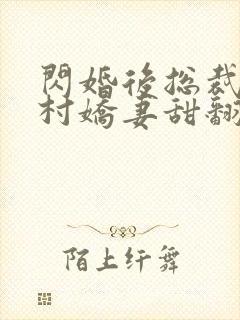 閃婚後總裁
村嬌妻甜翻
陌上纤舞